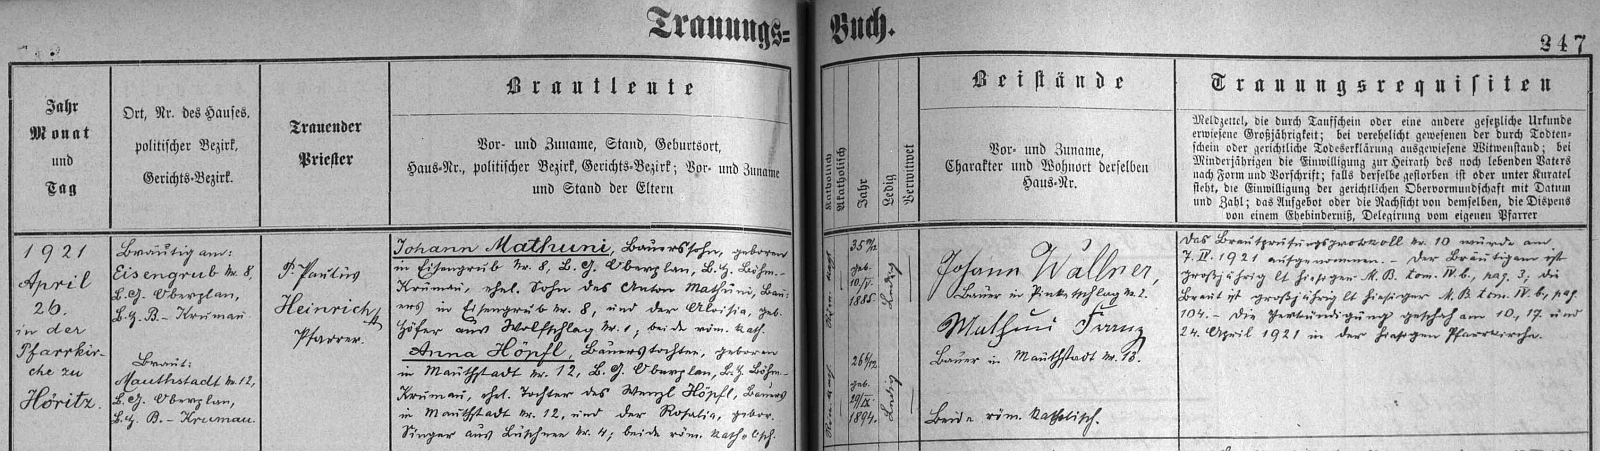 Trauungs=
Buch.
247
Jahr
Monat
und
Tag
Ort, Nr. des Hauses,
politischer Bezirk,
Gerichts-Bezirk.
Trauender
Priester
Brautleute
Vor- und Zuname, Stand, Geburtsort,
Haus-Nr., politischer Bezirk, Gerichts-Bezirk; Vor- und Zuname
und Stand der Eltern
Katholisch
Akatholisch
Jahr
Ledig
Verwitwet
Beistände
Vor- und Zuname,
Charakter und Wohnort derselben
Haus-Nr.
Trauungsrequisiten
Meldzettel, die durch Taufschein oder eine andere gesetzliche Urkunde
erwiesene Großjährigkeit; bei verehelicht gewesenen der durch Todten-
schein oder gerichtliche Todeserklärung ausgewiesene Witwenstand; bei
Minderjährigen die Einwilligung zur Heirath des noch lebenden Vaters
nach Form und Vorschrift; falls derselbe gestorben ist oder unter Kuratel
steht, die Einwilligung der gerichtlichen Obervormundschaft mit Datum
und Zahl; das Aufgebot oder die Nachsicht von demselben, die Dispens
von einem Ehehinderniß, Delegirung vom eigenen Pfarrer
1921
April
26.
in der
Pfarrkir-
che zu
Höritz.
Bräutigam:
Eisengrub Nr. 8,
B. G. Oberplan,
B. H. B.- Krumau
Braut:
Mauthstadt Nr. 12,
B. G. Oberplan,
B. H. B.- Krumau.
P. Paulus
Heinrich
Pfarrer.
Johann Mathuni, Bauerssohn, geboren
in Eisengrub Nr. 8, B. G. Oberplan, B. H. Böhm.-
Krumau, ehel. Sohn des Anton Mathuni, Bau-
ers in Eisengrub Nr. 8, und der Aloisia, geb.
Höfer aus Wolfschlag Nr. 1; beide röm. kath.
Anna Höpfl, Bauerstochter, geboren
in Mauthstadt Nr. 12, B. G. Oberplan, B. H. Böhm.-
Krumau, ehel. Tochter des Wenzl Höpfl, Bauers
in Mauthstadt Nr. 12, und der Rosalia, gebor.
Singer aus Nr. 4; beide röm. katholisch.
geb.
1885
Ledig
geb.
29/IX
1894.
Ledig
Johann Wallner,
Bauer in Pinketschlag Nr. 2.
Mathuni Franz
Bauer in Mauthstadt Nr. 13.
Beide röm. katholisch.
Das Brautprüfungsprotokoll Nr. 10 wurde am
7. II. 1921 aufgenommen. - Der Bräutigam ist
großjährig lt hiesiger M. B. tom. IV b., pag. 3; die
Braut ist großjährig lt hiesiger M. B. tom. IV b., pag.
104. - Die Verkündigung geschah am 10., 17. und
24. April 1921 in der hiesigen Pfarrkirche.